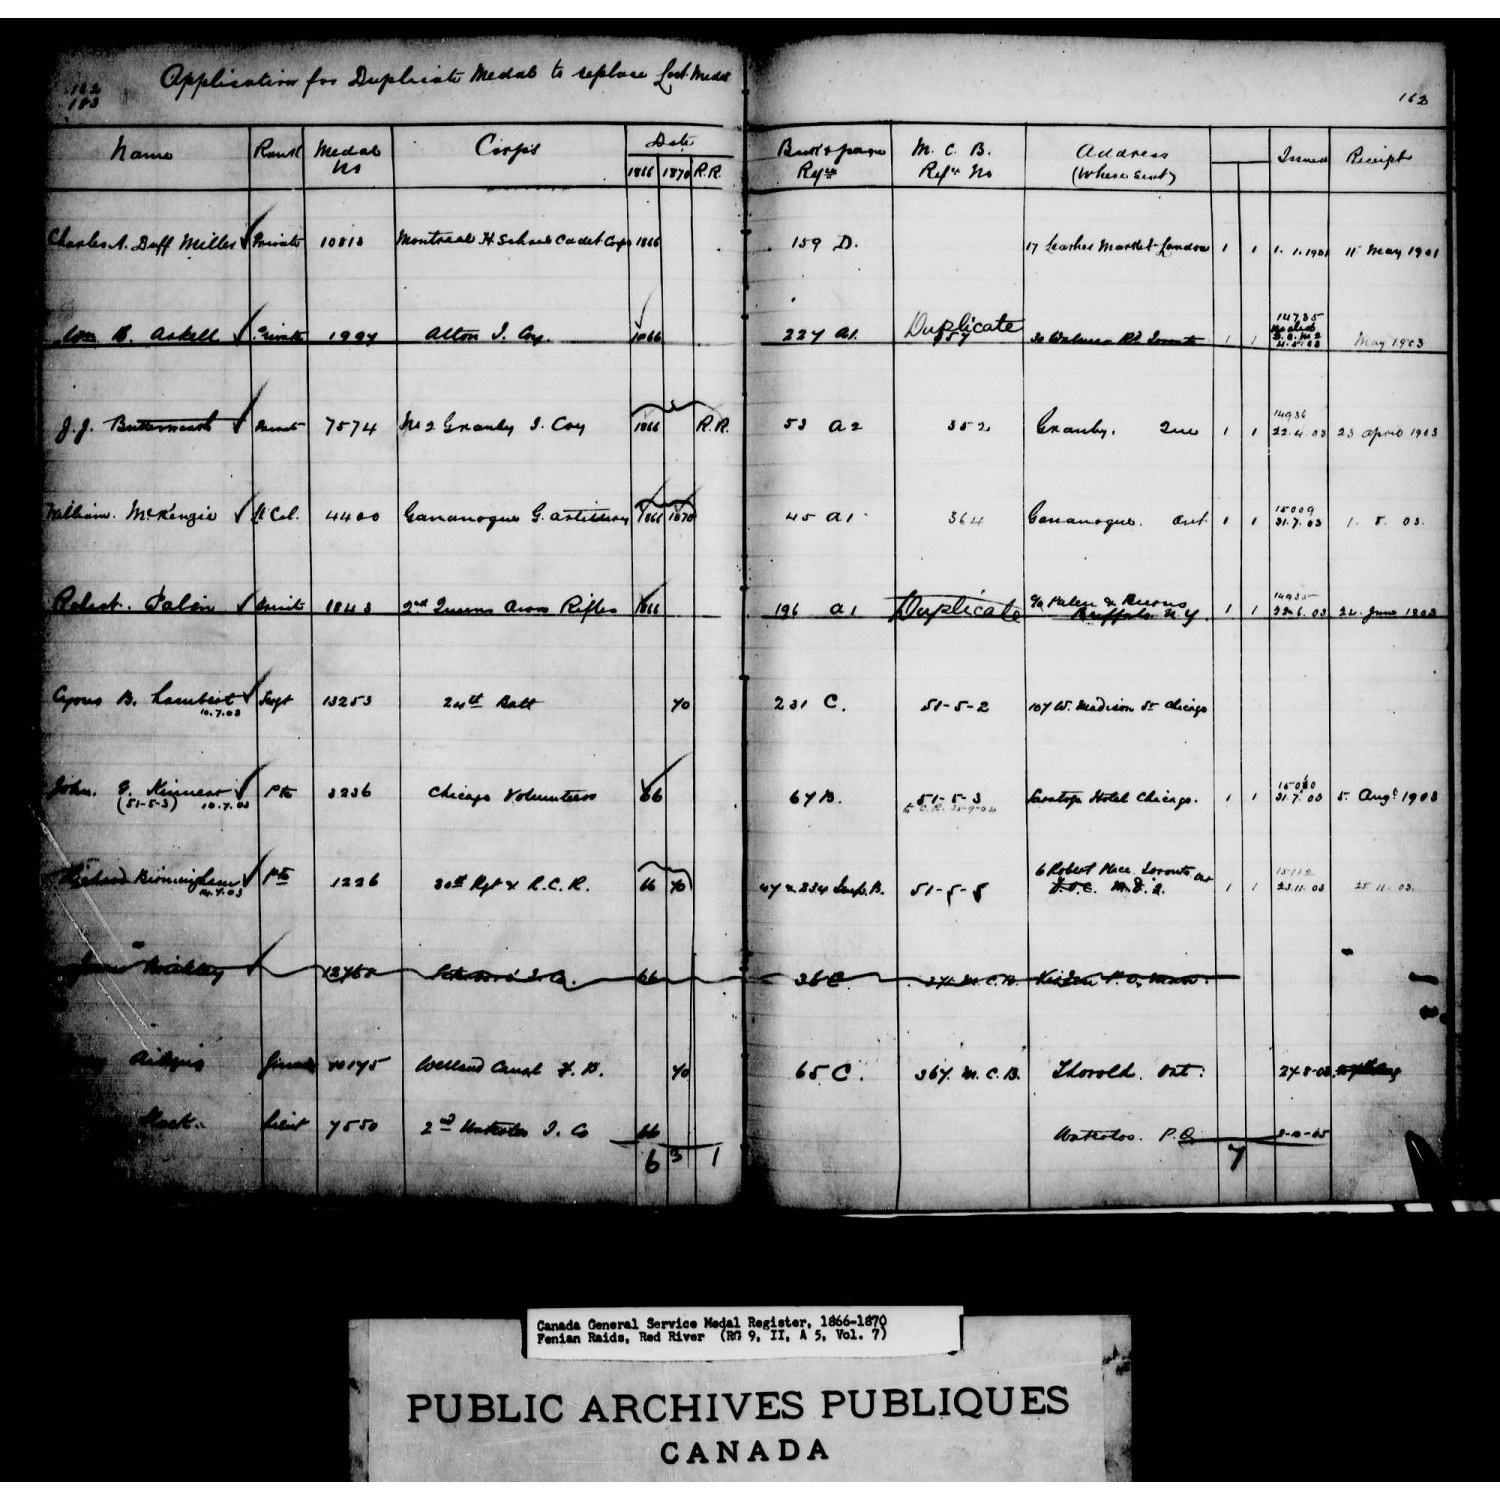 162
183
Application for Duplicate Medals to replace Lost Medal
162
Name Rank Medal No Corps Date 1866 1870 R.R. Book & page Ref M. C. B. Ref No Address (Where sent) Issued Receipt
Charles A. Duff Miller Private 10813 Montreal H School Cadet Corps 1866 159 D. 17 Leather Market London 1 1 1.1.1901 15 May 1901
Wm B. Askell Private 1997 Alton I. Coy. 1866 227 A1. Duplicate 357 Walmer Rd Toronto 1 1 14735 4.5.03 May 1903
J. J. Private 7574 No 2 Granby I. Coy 1866 R.R. 53 A2 352 Granby. Que 1 1 14936 22.4.03 23 April 1903
William McKenzie Lt Col. 4400 Gananoque G. Artillery 1866 1870 45 A1 364 Gananoque. Ont 1 1 15009 31.7.03 1. 8. 03.
Robert Private 1843 2nd Queens Own Rifles 1866 196 A1 Duplicate Buffalo N.Y. 1 1 14935 22.6.03 24 June 1903
Cyrus B. Lambert 10.7.03 Sergt 13253 24th Batt 70 231 C. 51-5-2 107 W. Madison St Chicago
John. G. Kinnear (51-5-3) 10.7.03 Pte 3236 Chicago Volunteers 66 67 B. 51-5-3 Saratoga Hotel Chicago. 1 1 31.7.03 5. Augt 1903
Richard Birmingham 14.7.03 Pte 1226 30th Rgt & R.C.R. 66 70 47 & 234 Sup. B. 51-5-5 6 Robert Place. Toronto Ont D.O.C. M.D. 2. 1 1 15112 23.11.03 25.11.03.
I. Co. 66 36 C M.C.B. P.O.
Welland Canal F. B. 70 65 C. 367. M. C. B. Thorold. Ont. 27-8-03
Lieut 7550 2nd Waterloo I. Co 66 Waterloo. P.Q.
6 3 1 7
Canada General Service Medal Register, 1866-1870
Fenian Raids, Red River (RG 9, II, A 5, Vol. 7)
PUBLIC ARCHIVES PUBLIQUES
CANADA